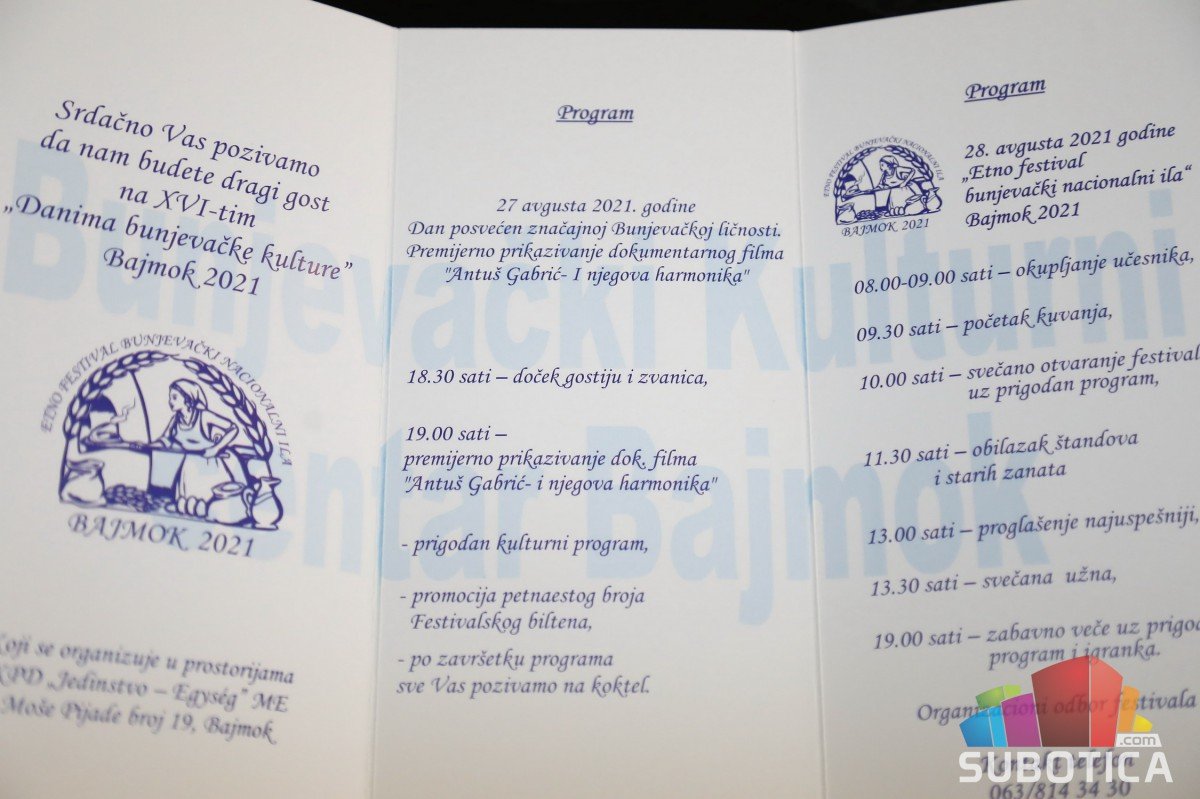 Srdačno Vas pozivamo
da nam budete dragi gost
na XVI-tim
„Danima bunjevačke kulture”
Bajmok 2021
ETNO FESTIVAL BUNJEVAČKI NACIONALNI ILA
BAJMOK 2021
Koji se organizuje u prostorijama
KPD „Jedinstvo – Egység” ME
Moše Pijade broj 19, Bajmok
Program
27 avgusta 2021. godine
Dan posvećen značajnoj Bunjevačkoj ličnosti.
Premijerno prikazivanje dokumentarnog filma
"Antuš Gabrić- I njegova harmonika"
18.30 sati – doček gostiju i zvanica,
19.00 sati –
premijerno prikazivanje dok. filma
"Antuš Gabrić- i njegova harmonika"
- prigodan kulturni program,
- promocija petnaestog broja
Festivalskog biltena,
- po završetku programa
sve Vas pozivamo na koktel.
Program
ETNO FESTIVAL BUNJEVAČKI NACIONALNI ILA
BAJMOK 2021
28. avgusta 2021 godine
„Etno festival
bunjevački nacionalni ila“
Bajmok 2021
08.00-09.00 sati – okupljanje učesnika,
09.30 sati – početak kuvanja,
10.00 sati – svečano otvaranje festival
uz prigodan program,
11.30 sati – obilazak štandova
i starih zanata
13.00 sati – proglašenje najuspešniji,
13.30 sati – svečana užna,
19.00 sati – zabavno veče uz prigod
program i igranka.
Organizacioni odbor festivala
Kontakt telefon
063/814 34 30
Bunjevački Kulturni
entar Bajmok
SUBOTICA
.com